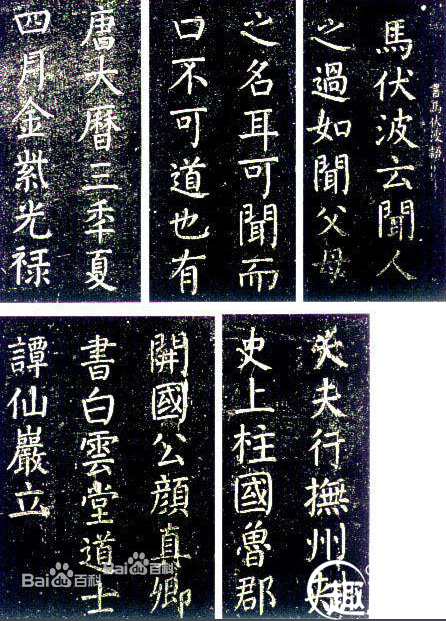 馬伏波云聞人
之過如聞父母
之名耳可聞而
口不可道也有
唐大暦三秊夏
四月金紫光禄
大夫行撫州刺
史上柱國魯郡
開國公顔真卿
書白雲堂道士
譚仙巖立
Bai百科
Bai百科
趣